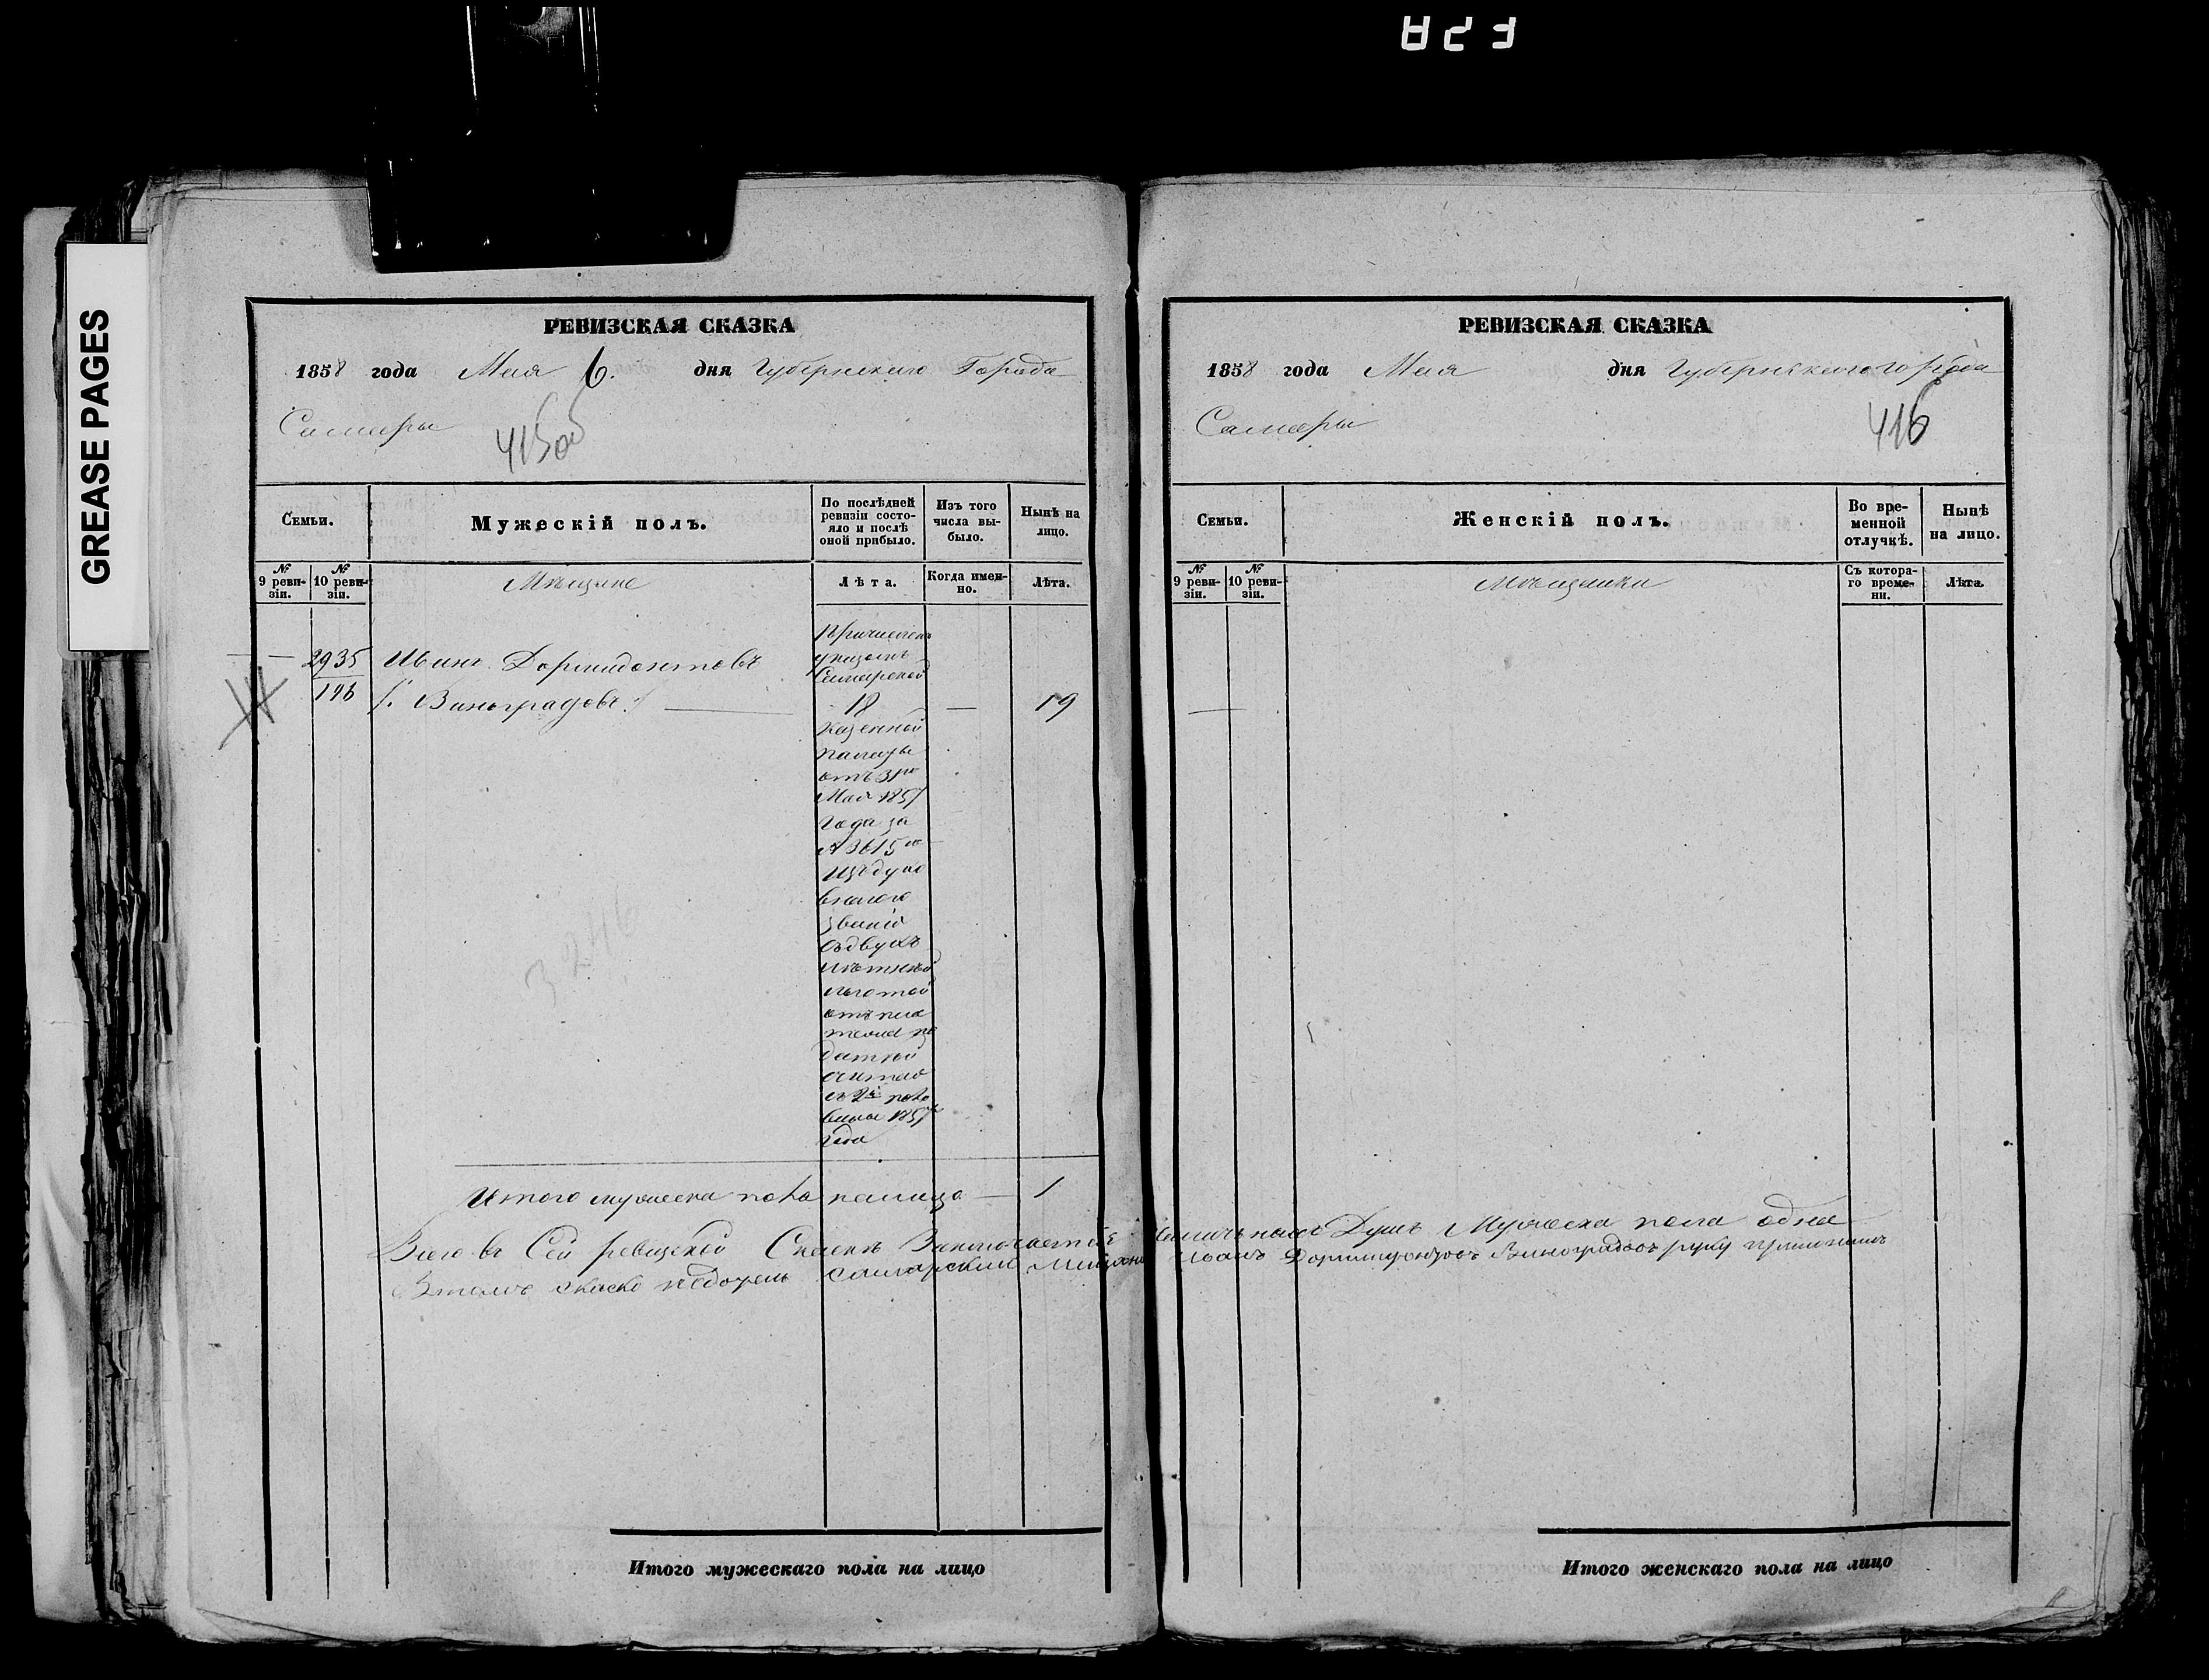 GREASE PAGES
РЕВИЗСКАЯ СКАЗКА
1858 года Мая 6. дня Губернскаго Города
Самары
415об
Семьи.
Мужескій полъ.
По послѣдней ревизіи состояло и послѣ оной прибыло.
Изъ того числа выбыло.
Нынѣ на лицо.
№ 9 ревизіи.
№ 10 ревизіи.
Мѣщане
Лѣта.
Когда именно.
Лѣта.
2935
196
Иванъ Дормидонтовъ
Виноградовъ
Причисленъ
указомъ
Самарской
18 — 19
Казенной
палаты
отъ 31го
Мая 1857
года за
№ 3615
изъ духо
внаго
званія
съ двухъ
лѣтней
льготой
отъ пла
тежа по
датей
считая
съ 2й поло
вины 1857
года
3246
Итого мужеска пола налицо — 1
Всего въ Сей ревизской Сказкѣ Заключается наличныхъ Душъ Мужеска пола одна
Самарский Мищанинъ Иванъ Дормидонтовъ Виноградовъ руку приложилъ
Итого мужескаго пола на лицо
РЕВИЗСКАЯ СКАЗКА
1858 года Мая дня Губернскаго города
Самары
416
Семьи.
Женскій полъ.
Во временной отлучкѣ.
Нынѣ на лицо.
№ 9 ревизіи.
№ 10 ревизіи.
Мѣщанки
Съ котораго времени.
Лѣта.
Итого женскаго пола на лицо